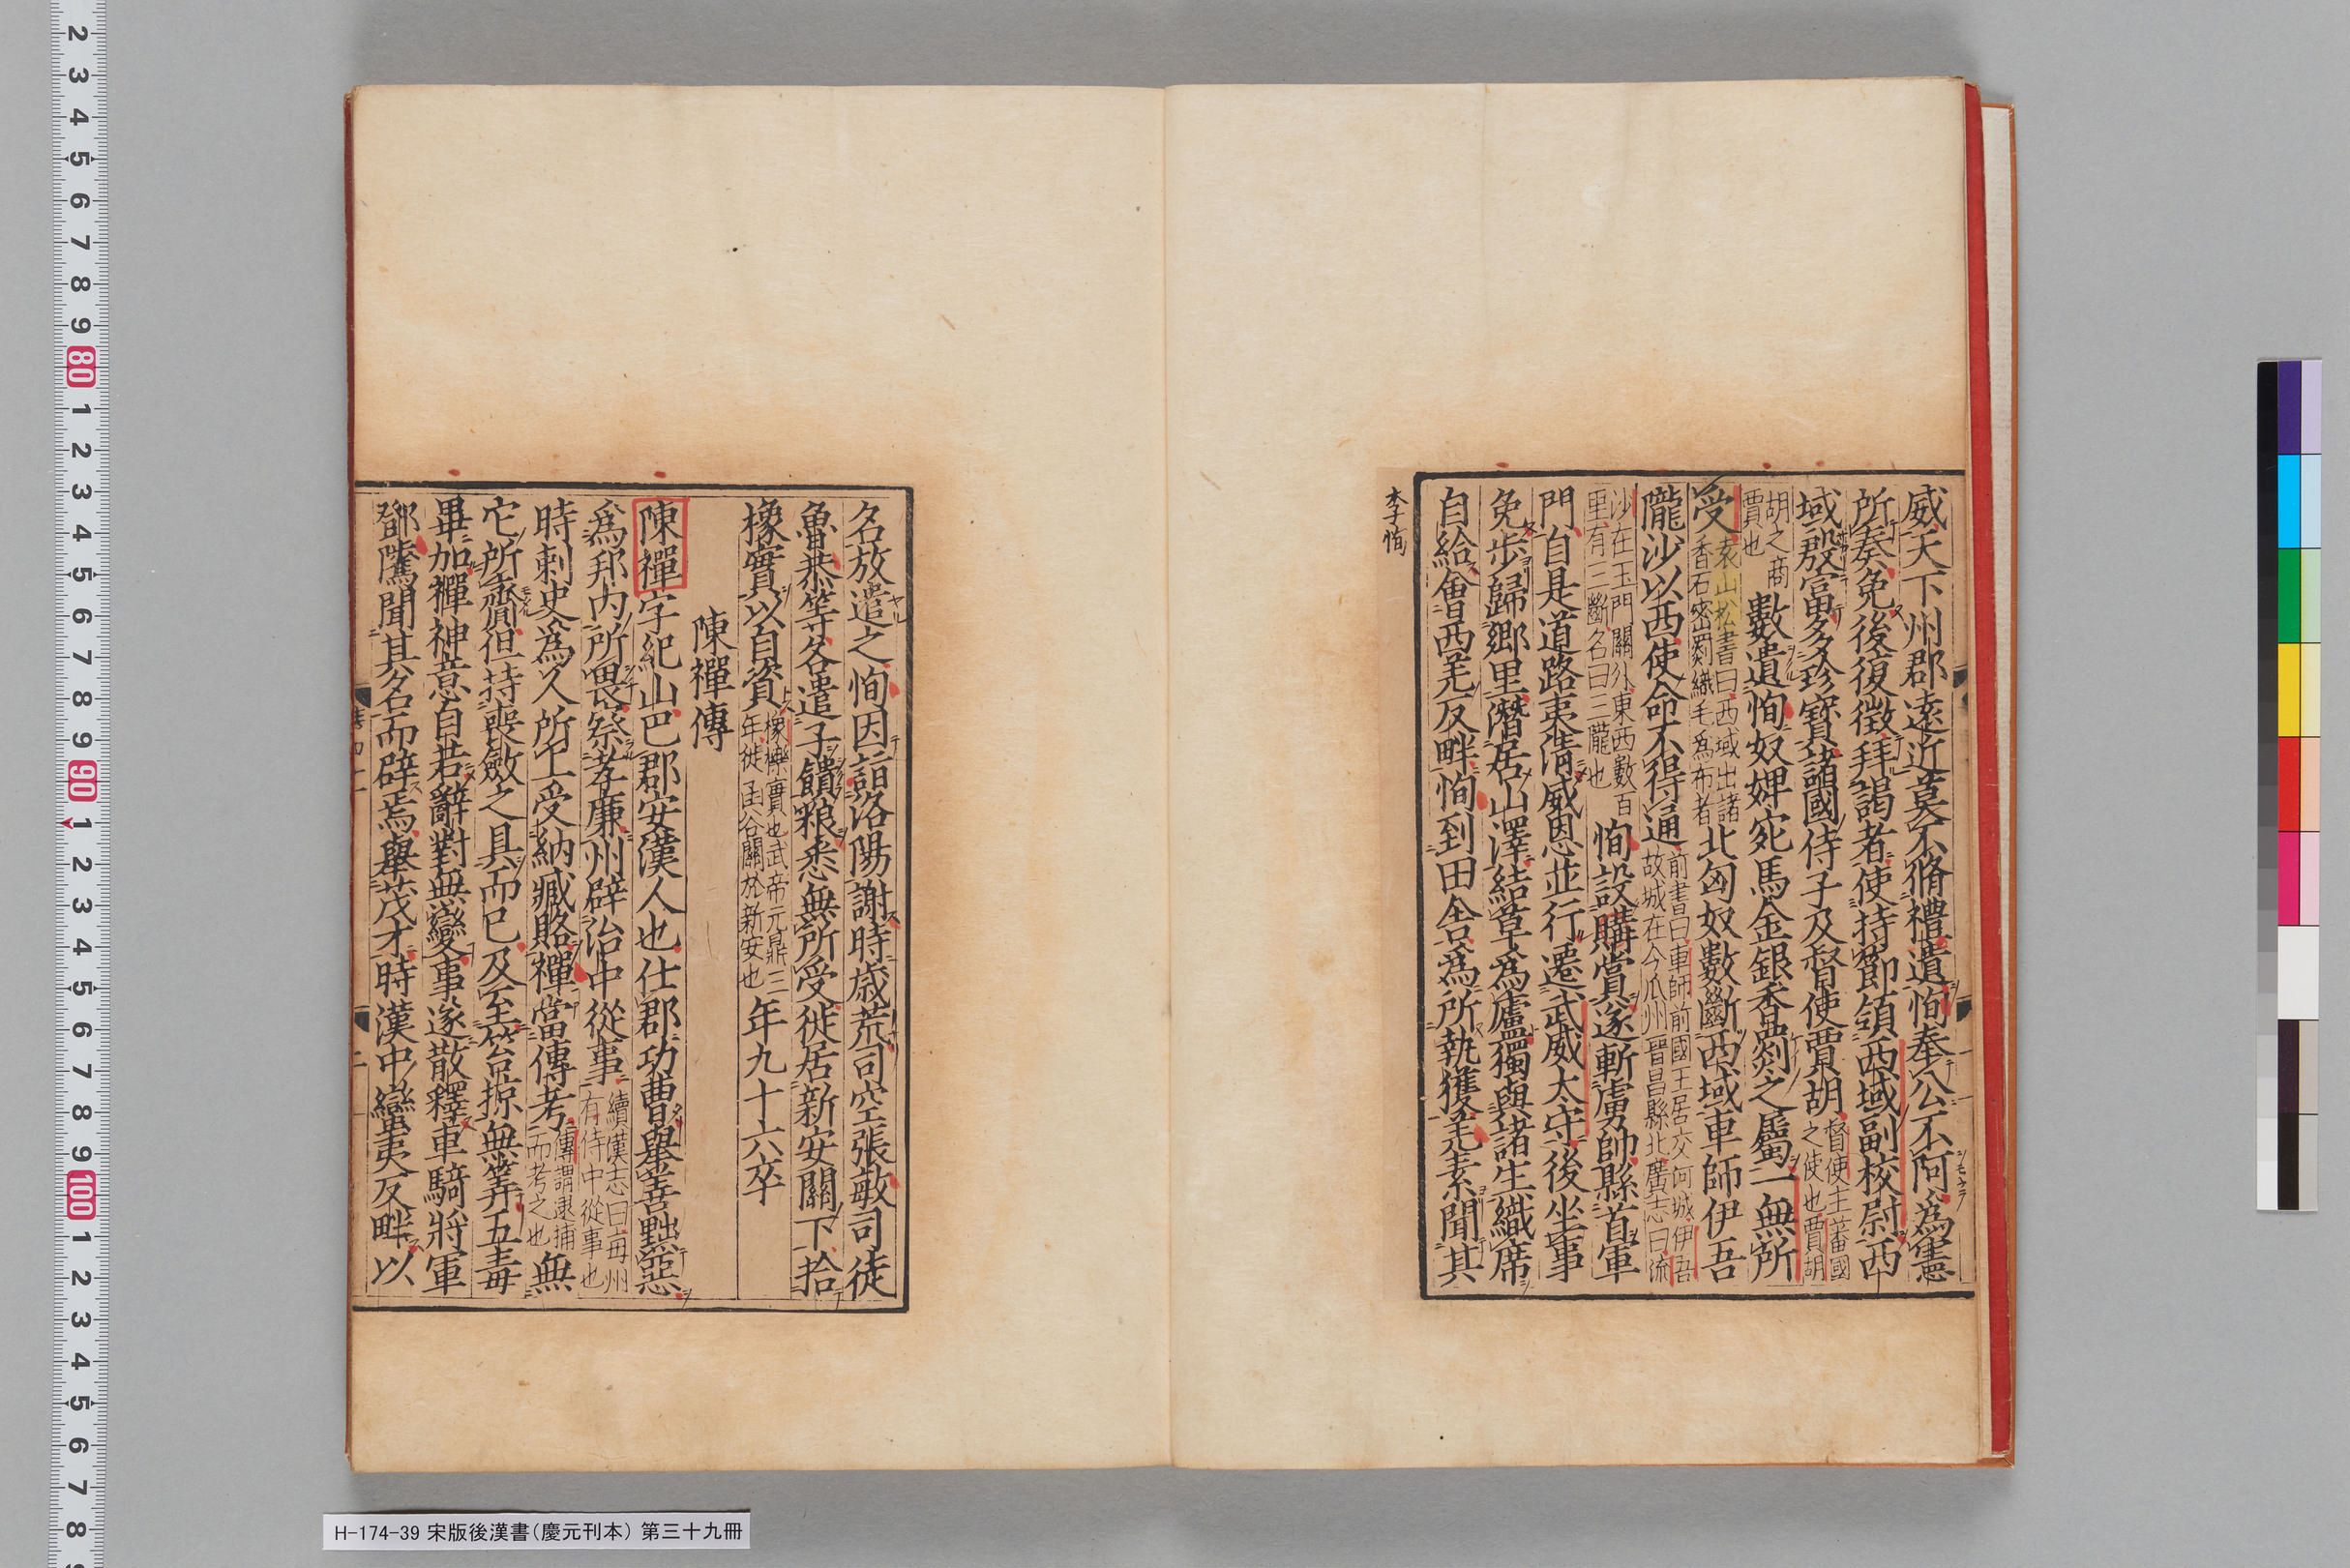 威天下州郡遠近莫不脩禮遺恂奉公不阿爲憲
所奏免後復徵拜謁者使持節領西域副校尉西
域殷富多珍寶諸國侍子及督使賈胡督使主蕃國之使也賈胡
胡之商賈也數遺恂奴婢宛馬金銀香罽之屬一無所
受袁山松書曰西域出諸香石密罽織毛爲布者北匈奴數斷西域車師伊吾
隴沙以西使命不得通前書曰車師前國王居交河城伊吾故城在今瓜州晉昌縣北廣志曰流
沙在玉門關外東西數百里有三斷名曰三隴也恂設購賞遂斬虜帥縣首軍
門自是道路夷清威恩並行遷武威太守後坐事
免步歸鄉里潛居山澤結草爲廬獨與諸生織席
自給會西羌反畔恂到田舍爲所執獲羌素聞其
李恂
名放遣之恂因詣洛陽謝時歲荒司空張敏司徒
魯恭等各遣子饋粮悉無所受徙居新安關下拾
橡實以自資橡櫟實也武帝元鼎三年徙函谷關於新安也年九十六卒
陳禪傳
陳禪字紀山巴郡安漢人也仕郡功曹舉善黜惡
爲邦內所畏察孝廉州辟治中從事續漢志曰每州有侍中從事也
時刺史爲人所上受納臧賂禪當傳考傳謂逮捕而考之也無
它所齎但持喪斂之具而已及至笞掠無筭五毒
畢加禪神意自若辭對無變事遂散釋車騎將軍
鄧騭聞其名而辟焉舉茂才時漢中蠻夷反畔以
H-174-39 宋版後漢書（慶元刊本） 第三十九冊